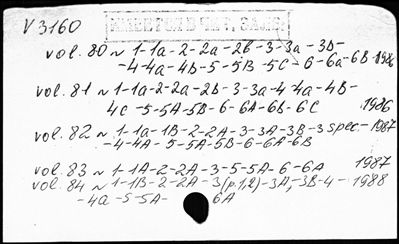 V 3160
ИМЕЕТСЯ В ЧИТ. ЗАЛЕ
vol. 80 ~ 1-1a-2-2a-2b-3-3a-3B-
-4-4a-4B-5-5B-5C-6-6a-6B-1986
vol. 81 ~ 1-1a-2-2a-2b-3-3a-4-4a-4B-
4C-5-5A-5B-6-6A-6B-6C 1986
vol. 82 ~ 1-1a-1B-2-2A-3-3A-3B-3 spec.-1987
-4-4A-5-5A-5B-6-6A-6B
vol. 83 ~ 1-1A-2-2A-3-5-5A-6-6A 1987
vol. 84 ~ 1-1B-2-2A-3(p.1,2)-3A,-3B-4-1988
-4a-5-5A- 6A